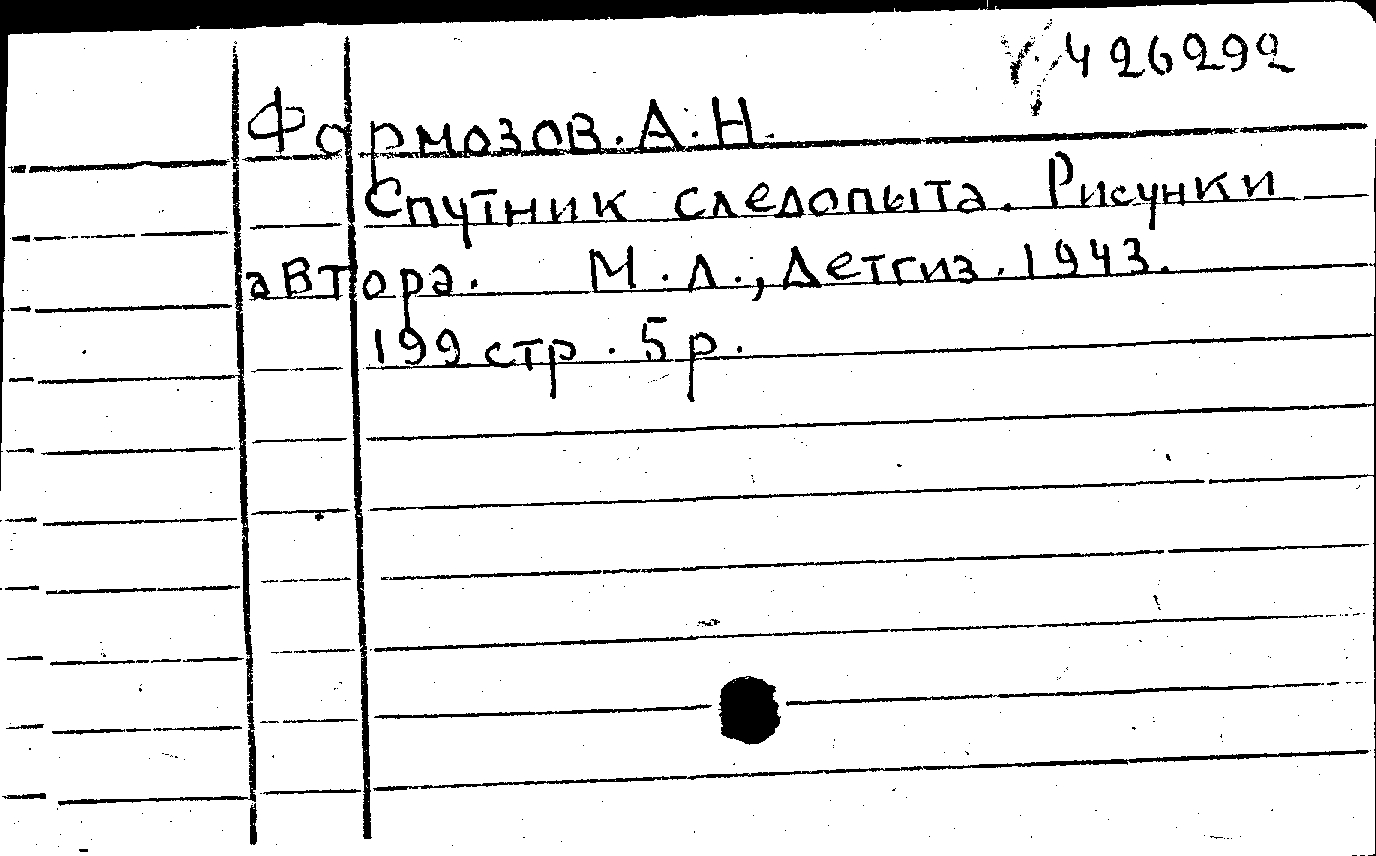 426292
Формозов. А. Н.
Спутник следопыта. Рисунки
автора. М. Л., Детгиз. 1943.
199 стр. 5 р.